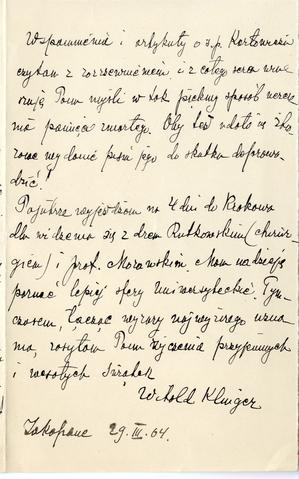 Wspomnienia i artykuły o ś.p. Karłowiczu
czytam z rozrzewnieniem i z całego serca
Pani myśli w tak piękny sposób uczcić
pamięć zmarłego. Oby też udało się
wydanie pism jego do skutku doprowa-
dzić!
Pojutrze wyjeżdżam na 4 dni do Krakowa
dla widzenia się z drem Rutkowskim (chirur-
giem) i prof. Morawskim. Mam nadzieję
poznać lepiej sfery Uniwersyteckie. Tym-
czasem, łącząc wyrazy najwyższego uzna-
nia, zasyłam Pani życzenia przyjemnych
i wesołych Świątek
Witold Klinger
Zakopane 29. III. 04.